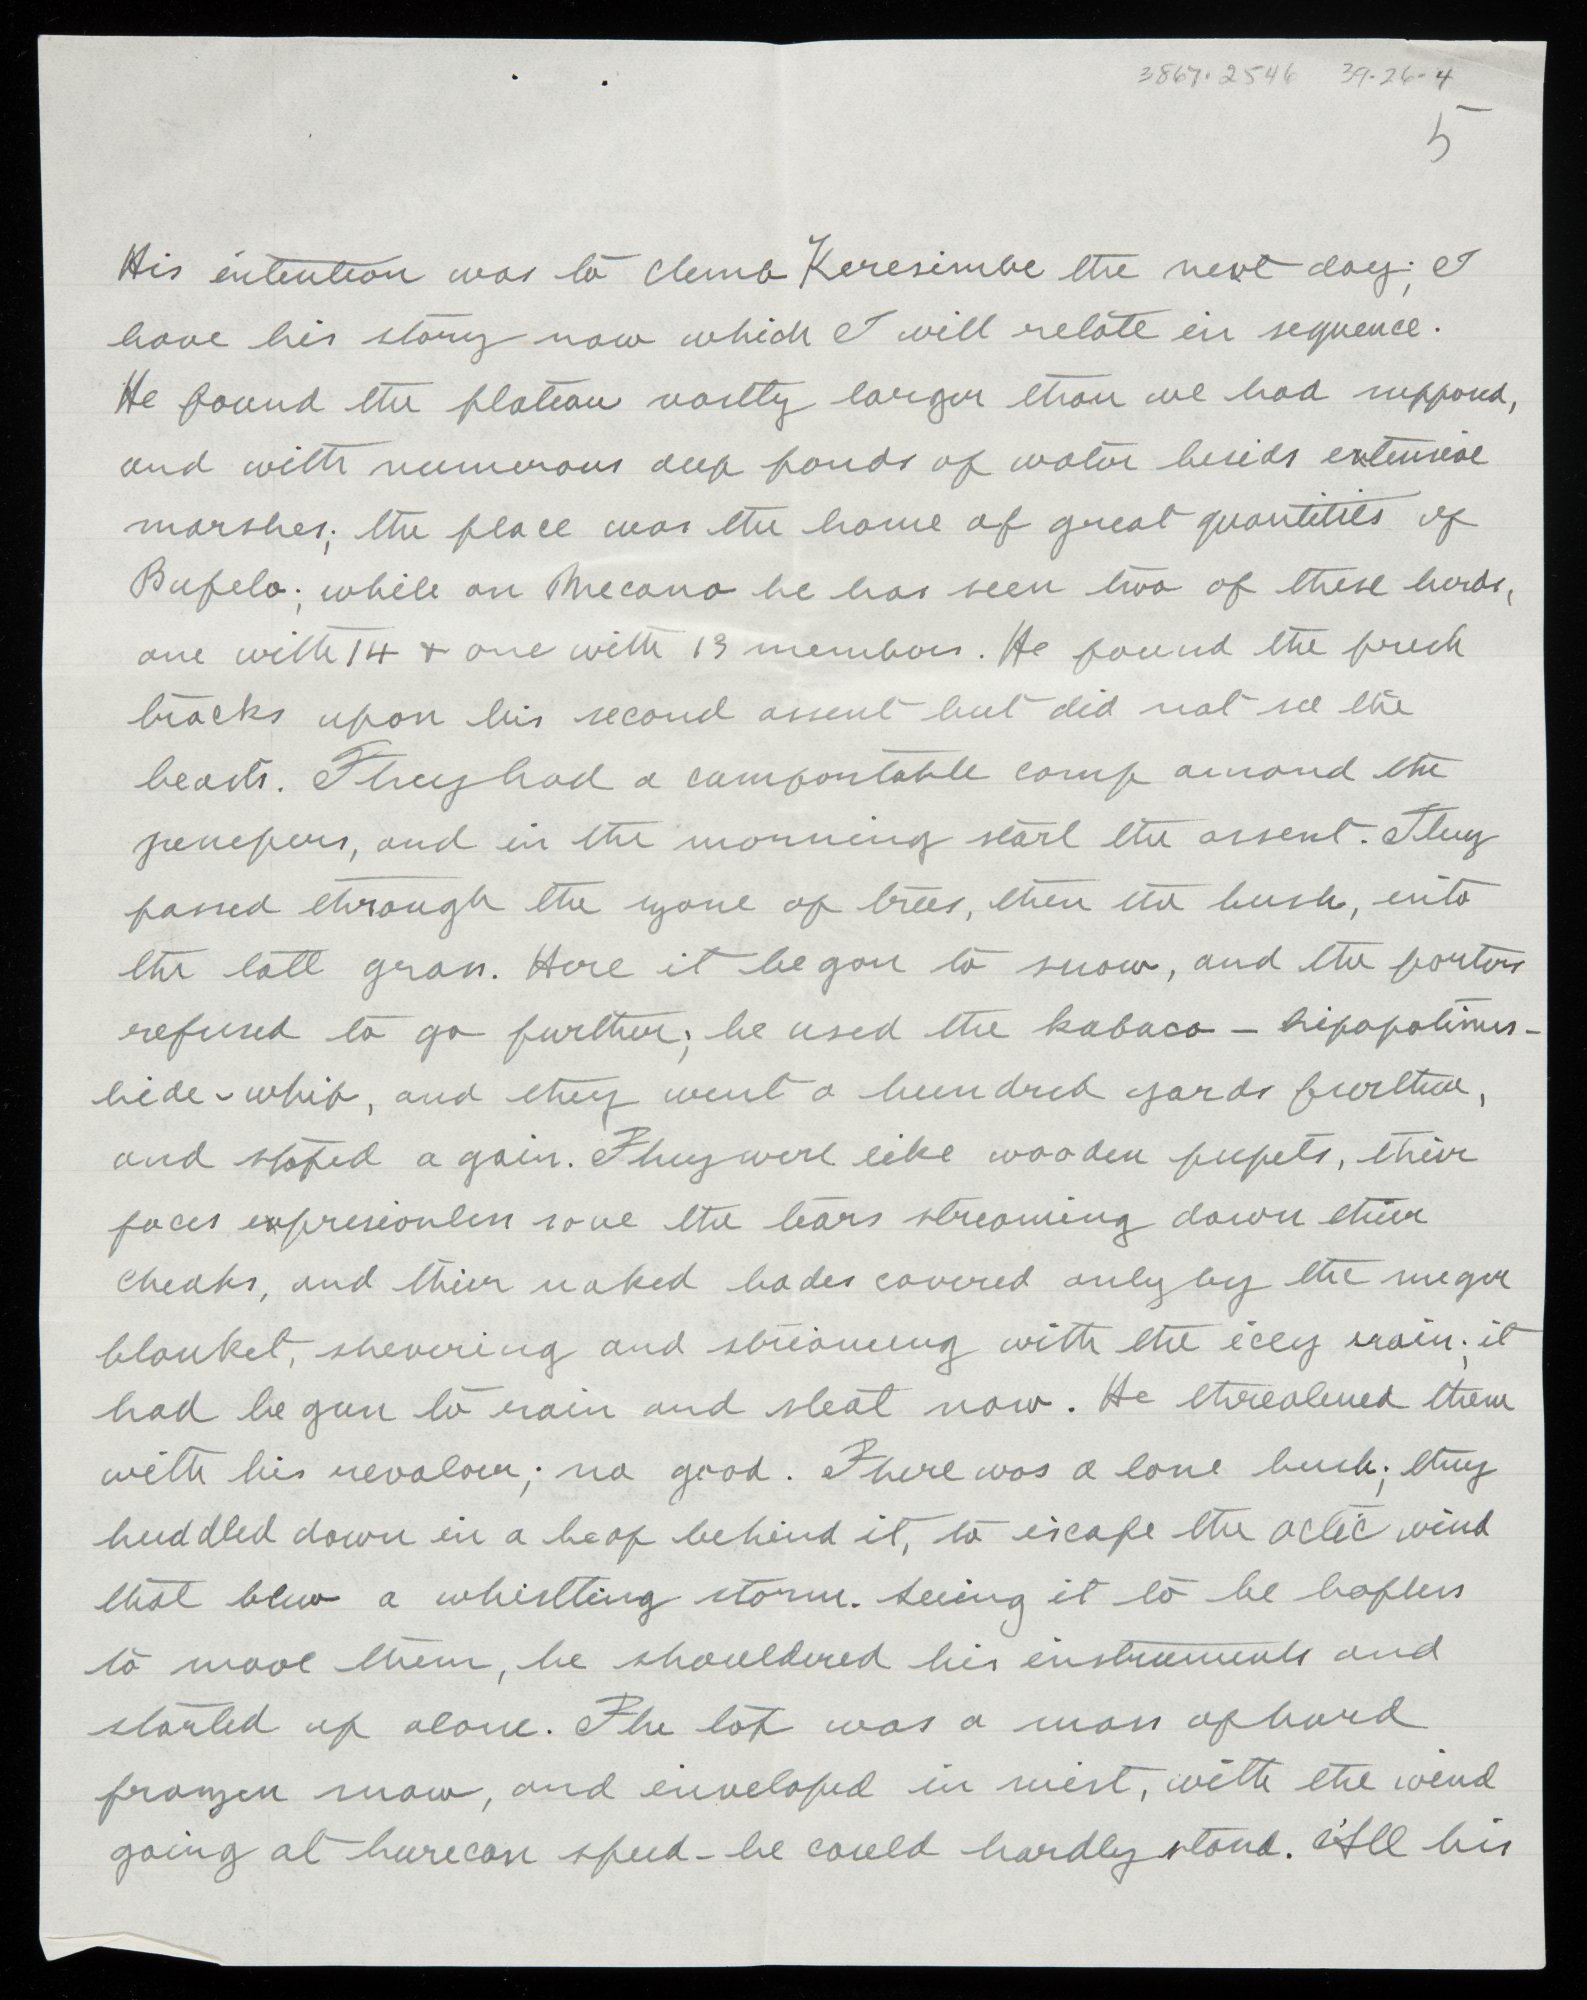 3867.2546 39-26-4
5
His intention was to clemb Keresimbe the next day; I
have his story now which I will relate in sequence.
He found the plateau vastly larger than we had suppousd,
and with numerous deep ponds of water besids extensive
marshes; the place was the home of great quantities of
Bufelo; while on Mecano he has seen two of these herds,
one with 14 & one with 13 members. He found the fresh
tracks upon his second assent but did not see the
beasts. They had a comfortable camp amond the
junepers, and in the morning start the assent. They
passed through the zone of trees, then the bush, into
the tall grass. Here it began to snow, and the porters
refused to go further; he used the kabaco - hipopotimus-
hide-whip, and they went a hundred yards further,
and stoped again. They were like wooden pupets, thier
faces expresionless save the tears streaming down thier
cheaks, and thier naked bodes covered only by the meger
blanket, shevering and streaming with the icey rain; it
had begun to rain and sleat now. He threatened them
with his revalour; no good. There was a lone bush; they
huddled down in a heap behind it, to escape the actic wind
that blew a whistling storm. Seeing it to be hopless
to move them, he shouldered his instruments and
started up alone. The top was a mass of hard
frozen snow, and enveloped in mist, with the wind
going at hurecan speed - he could hardly stand. All his